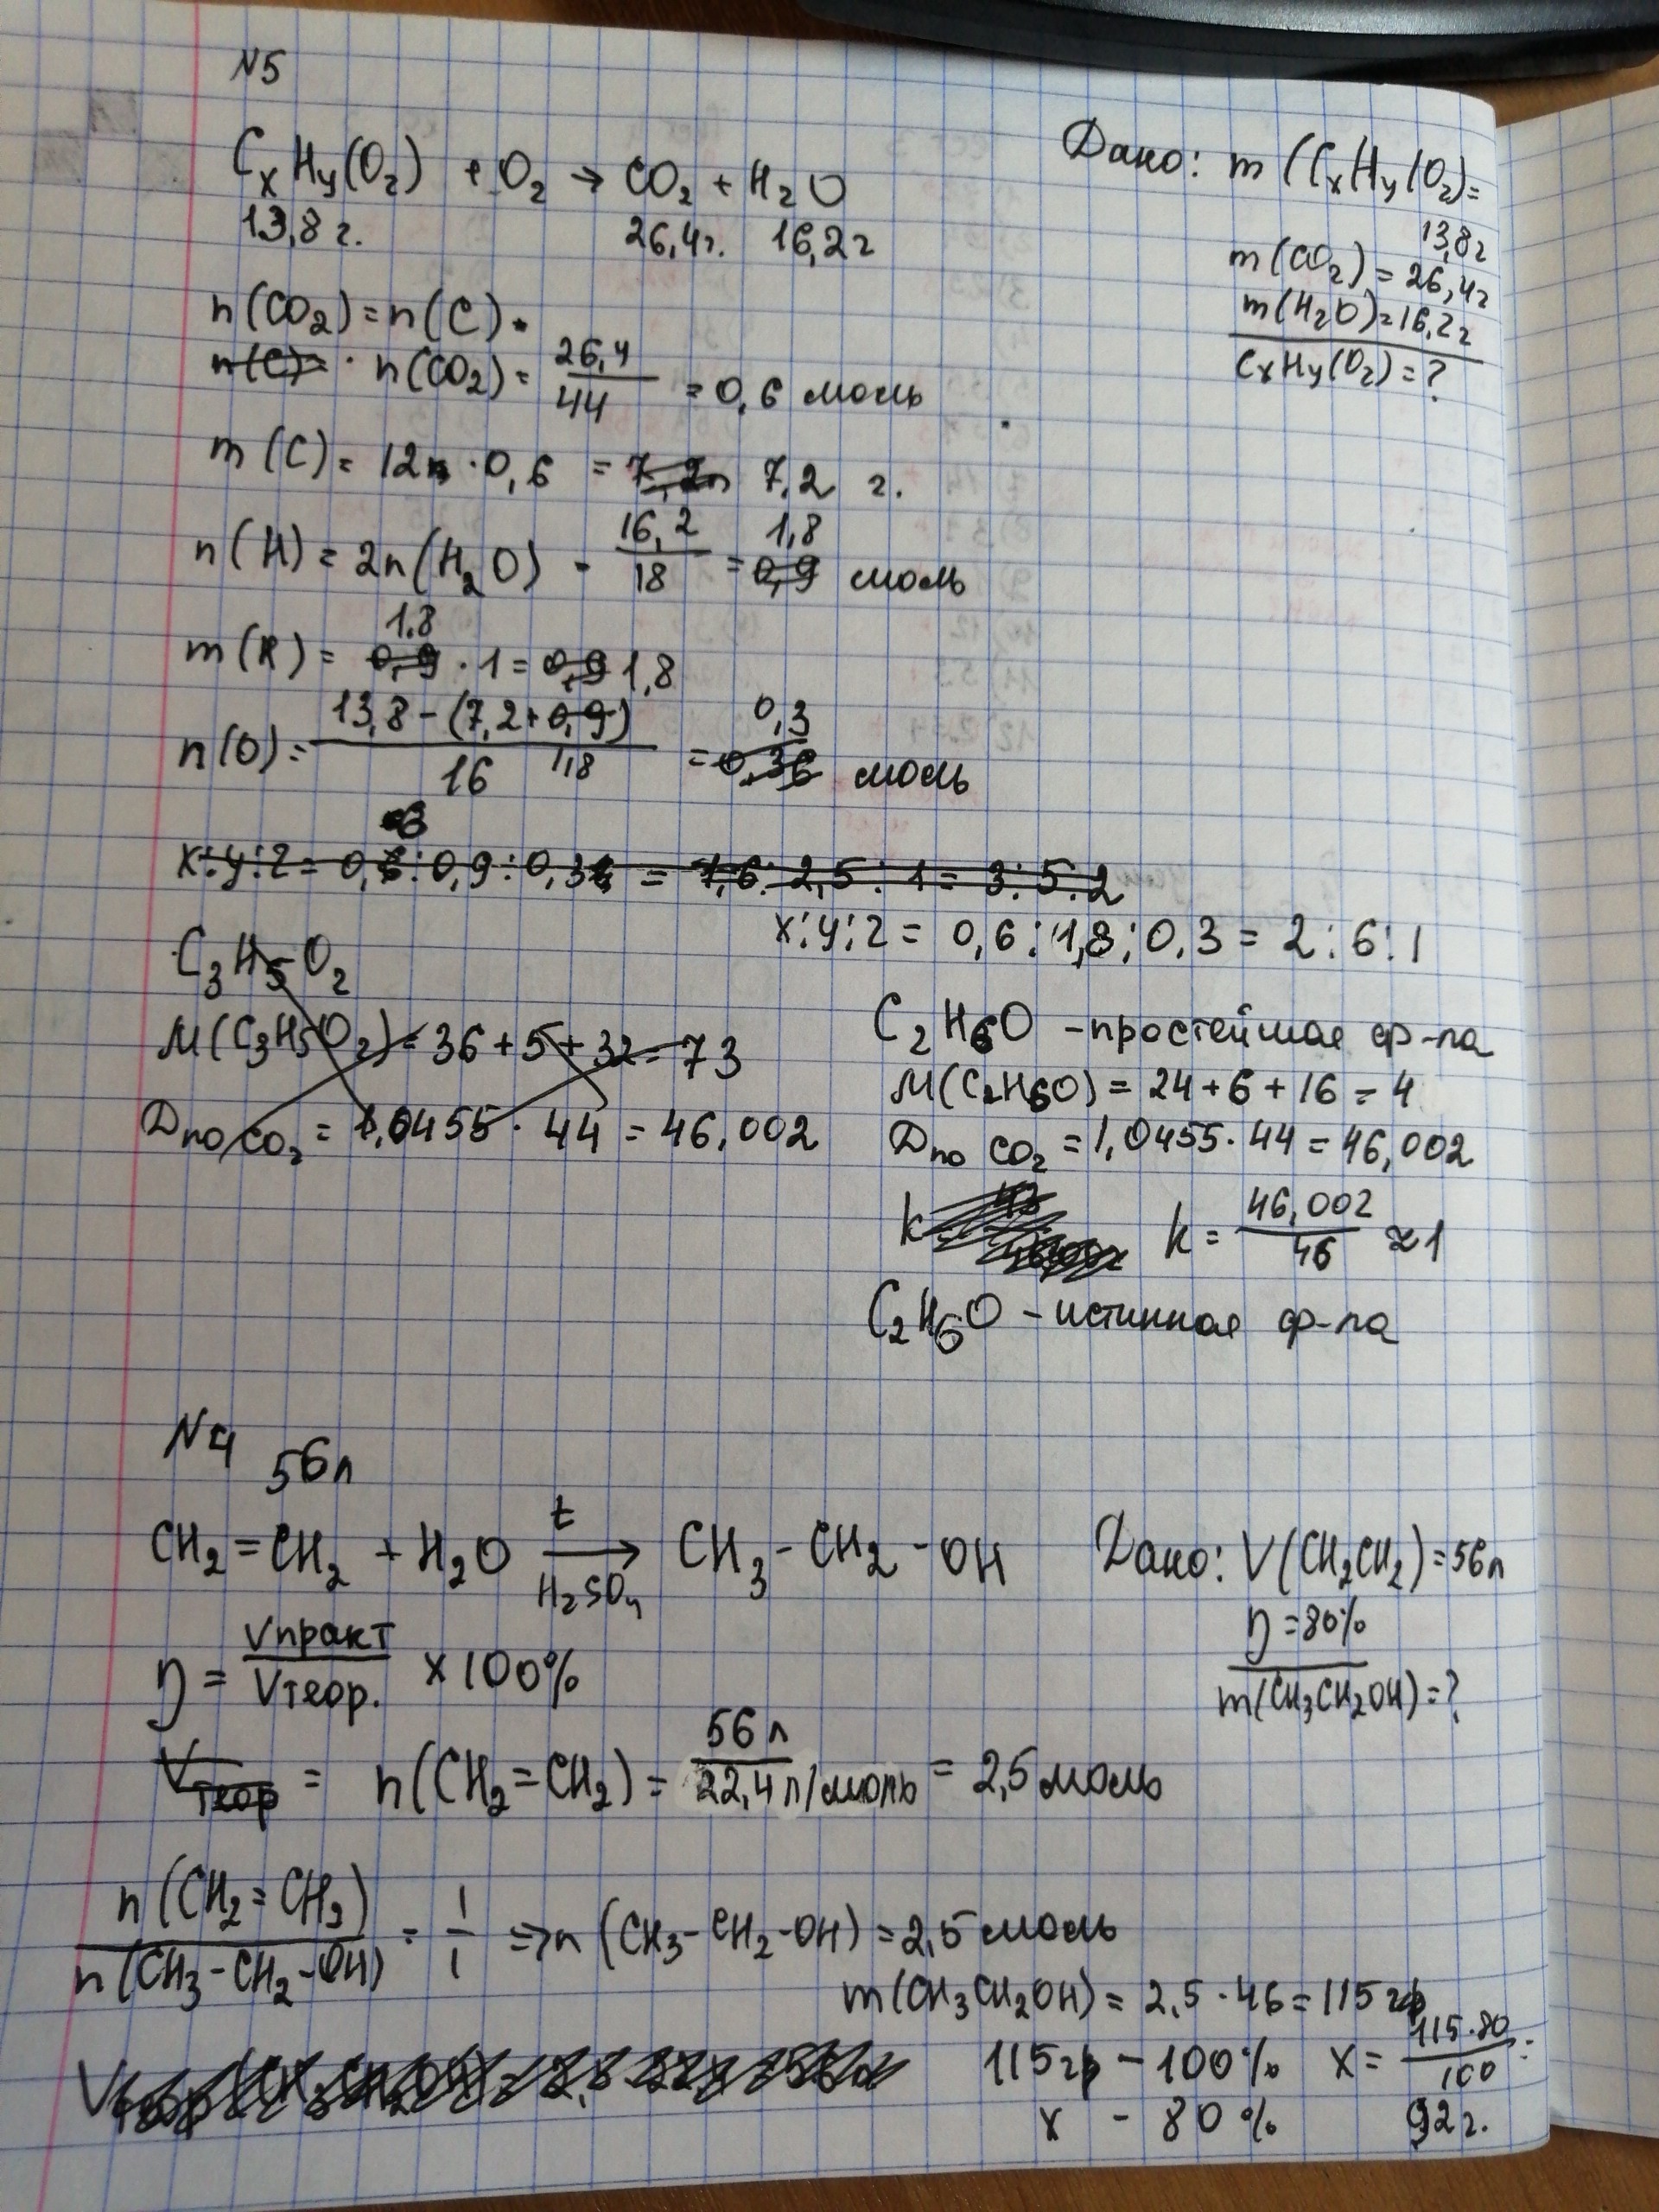 N5
CxHy(O2) + O2 → CO2 + H2O
13,8 г. 26,4г. 16,2г
Дано: m (CxHy(O2)=
13,8г
m(CO2) = 26,4г
m(H2O)=16,2г
CxHy(O2) = ?
n(CO2) = n(C).
n(C)= · n(CO2) = 26,4/44 = 0,6 моль
m(C) = 12 · 0,6 = 7,2 7,2 г.
n(H) = 2n(H2O) - 16,2/18 = 0,9 1,8 моль
m(H) = 0,9 1,8 · 1 = 0,9 1,8
n(O) = 13,8 - (7,2+0,9) 1,8 / 16 = 0,36 0,3 моль
x:y:z = 0,6:0,9:0,36 = 1,6:2,5:1 = 3:5:2
x:y:z = 0,6:1,8:0,3 = 2:6:1
C3H5O2
M(C3H5O2) = 36+5+32=73
Dпо CO2 = 1,0455 · 44 = 46,002
C2H6O - простейшая ф-ла
M(C2H6O) = 24+6+16 = 4
Dпо CO2 = 1,0455 · 44 = 46,002
k k = 46,002/46 ≈ 1
C2H6O - истинная ф-ла
N4
56л
CH2=CH2 + H2O t→ H2SO4 CH3-CH2-OH
Дано: V(CH2CH2)=56л
η=80%
m(CH3CH2OH)=?
η = Vпракт/Vтеор. x100%
Vтеор = n(CH2=CH2) = 56л/22,4л/моль = 2,5 моль
n(CH2=CH2)/n(CH3-CH2-OH) = 1/1 => n(CH3-CH2-OH) = 2,5 моль
m(CH3CH2OH) = 2,5 · 46 = 115 г
115гр - 100% x = 115·80/100 =
x - 80% 92г.